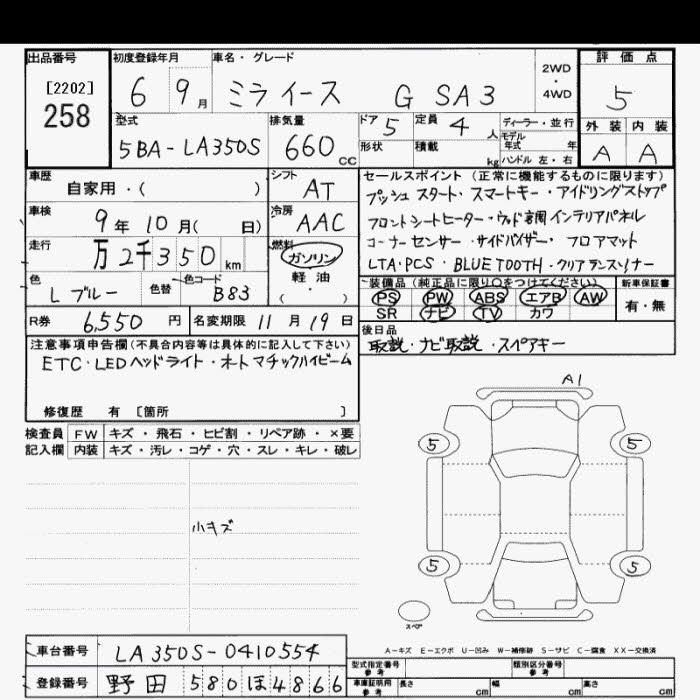 出品番号 [2202] 258
初度登録年月 6 9月
車名・グレード ミライース G SA3
2WD・4WD
評価点 5
型式 5BA-LA350S
排気量 660 CC
ドア 5 定員 4 人
ディーラー・並行
モデル年式 年
形状 積載 kg ハンドル 左・右
外装 内装
A A
車歴 自家用・( )
シフト AT
車検 9年10月( 日)
冷房 AAC
走行 万2千350 km
燃料 ガソリン 軽油 (・)
色 Lブルー 色替 色コード B83
セールスポイント (正常に機能するものに限ります)
プッシュスタート・スマートキー・アイドリングストップ
フロントシートヒーター・ウッド調インテリアパネル
コーナーセンサー・サイドバイザー・フロアマット
LTA・PCS・BLUETOOTH・クリアランスソナー
装備品(純正品に限り○をつけてください)
PS PW ABS エアB AW
SR ナビ TV カワ
新車保証書 有・無
R券 6,550 円 名変期限 11月19日
後日品
取説・ナビ取説・スペアキー
注意事項申告欄(不具合内容等は具体的に記入して下さい)
ETC・LEDヘッドライト・オートマチックハイビーム
修復歴 有 [箇所 ]
検査員 FW キズ・飛石・ヒビ割・リペア跡・×要
記入欄 内装 キズ・汚レ・コゲ・穴・スレ・キレ・破レ
小キズ
A1
5 5
5 5
スペア
A-キズ E-エクボ U-凹み W-補修跡 S-サビ C-腐食 XX-交換済
車台番号 LA350S-0410554
登録番号 野田 580 ほ 4866
型式指定番号 参考 類別区分番号 参考
車庫証明用 参考 長さ cm 幅 cm 高さ cm